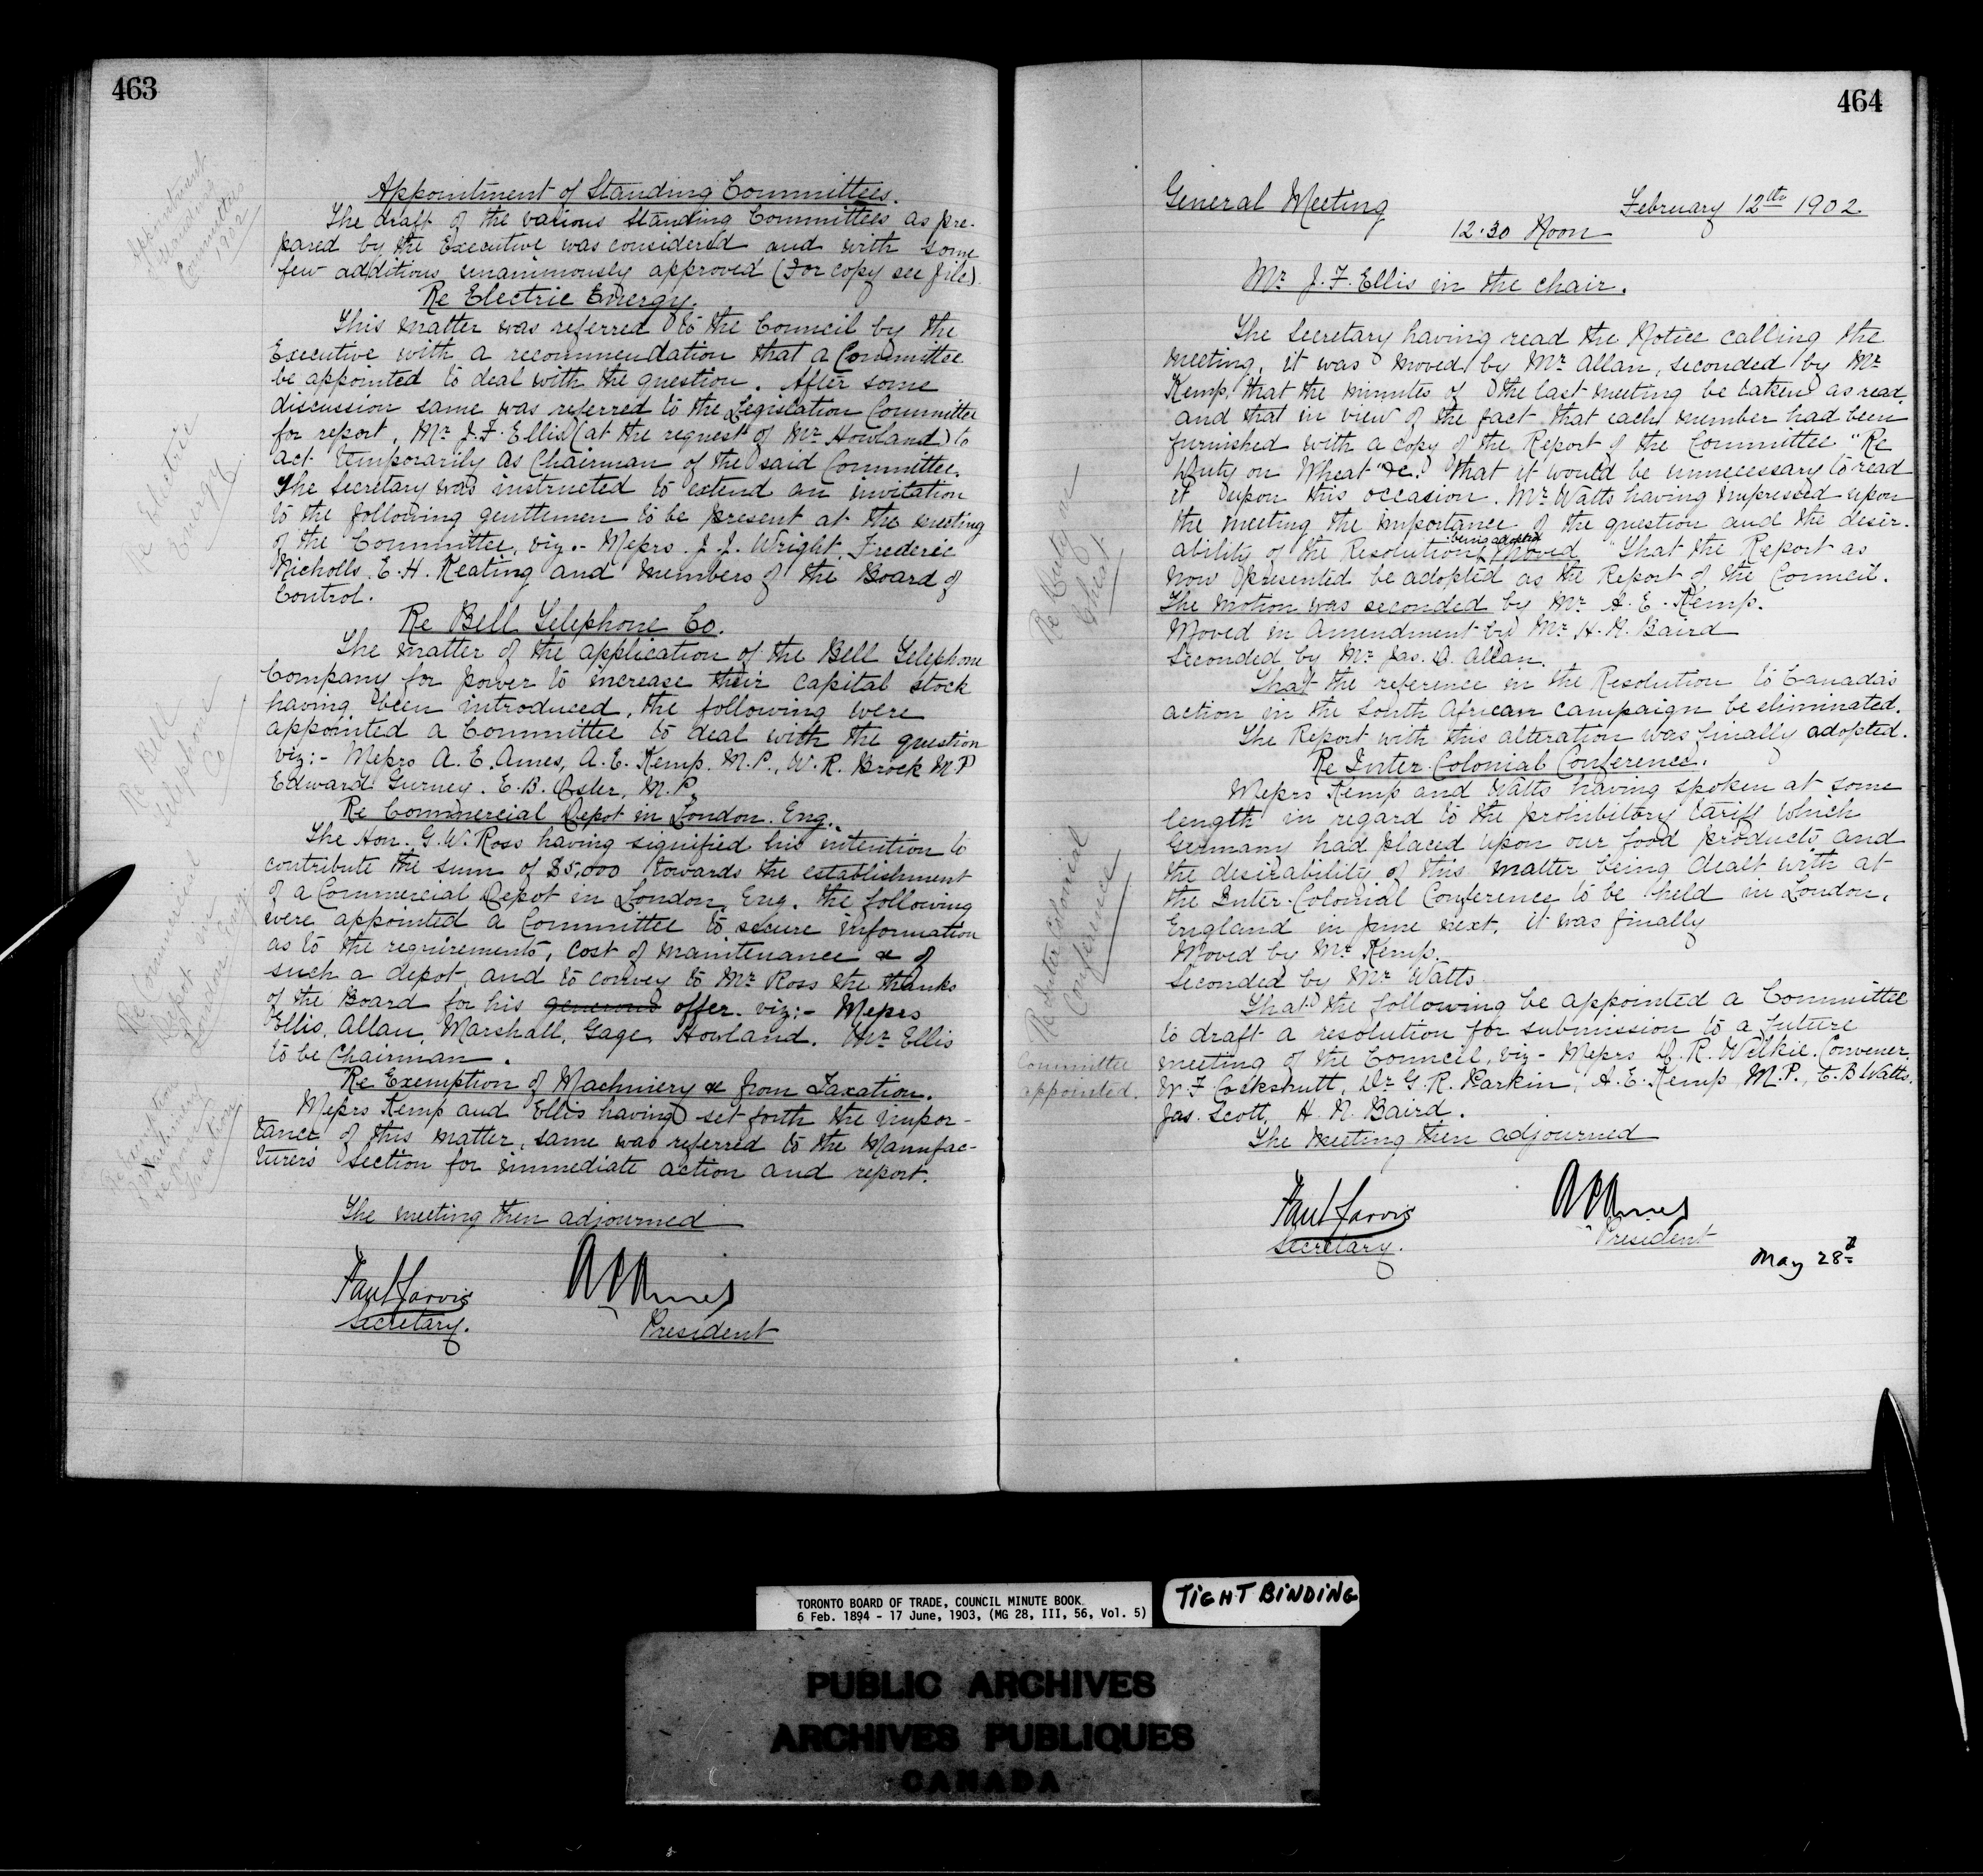 463
Appointment
Standing
Committees
1902
Appointment of Standing Committees.
The draft of the various Standing Committees as pre-
pared by the Executive was considered and with some
few additions unanimously approved (For copy see file).
Re Electric Energy.
Re Electric
Energy
This matter was referred to the Council by the
Executive with a recommendation that a Committee
be appointed to deal with the question. After some
discussion same was referred to the Legislation Committee
for report, Mr. J. F. Ellis (at the request of Mr. Howland) to
act temporarily as Chairman of the said Committee.
The Secretary was instructed to extend an invitation
to the following gentlemen to be present at the meeting
of the Committee, viz.- Messrs. J. J. Wright, Frederic
Nicholls, E. H. Keating and Members of the Board of
Control.
Re Bell Telephone Co.
Re Bell
Telephone
Co
The matter of the application of the Bell Telephone
Company for power to increase their capital stock
having been introduced, the following were
appointed a Committee to deal with the question
viz:- Messrs A. E. Ames, A. E. Kemp. M.P., W. R. Brock M P
Edward Gurney. E. B. Osler, M.P.
Re Commercial Depot in London. Eng.
Re Commercial
Depot in
London Eng.
The Hon. G. W. Ross having signified his intention to
contribute the sum of $5,000 towards the establishment
of a Commercial Depot in London, Eng. the following
were appointed a Committee to secure information
as to the requirements, cost of maintenance &c of
such a depot, and to convey to Mr. Ross the thanks
of the Board for his generous offer. viz:- Messrs
Ellis, Allan, Marshall, Gage, Howland. Mr. Ellis
to be Chairman.
Re Exemption of Machinery &c from Taxation.
Re Exemption
of Machinery
from
Taxation
Messrs Kemp and Ellis having set forth the impor-
tance of this matter, same was referred to the Manufac-
turers Section for immediate action and report.
The meeting then adjourned
Paul Jarvis
Secretary.
A E Ames
President
464
General Meeting
February 12th 1902
12.30 Noon
Mr. J. F. Ellis in the chair.
The Secretary having read the Notice calling the
meeting, it was moved by Mr. Allan, seconded by Mr.
Kemp, that the minutes of the last meeting be taken as read,
and that in view of the fact that each member had been
furnished with a copy of the Report of the Committee "Re
Duty on Wheat" &c. that it would be unnecessary to read
it upon this occasion. Mr. Watts having impressed upon
the meeting the importance of the question and the desir-
ability of the Resolution being adopted moved "That the Report as
now presented be adopted as the Report of the Council.
The motion was seconded by Mr. A. E. Kemp.
Re Duty on
Wheat
Moved in Amendment by Mr. H. N. Baird
Seconded by Mr. Jas. D. Allan.
That the reference in the Resolution to Canada's
action in the South African campaign be eliminated.
The Report with this alteration was finally adopted.
Re Inter-Colonial Conference.
Re Inter Colonial
Conference
Messrs Kemp and Watts having spoken at some
length in regard to the prohibitory tariff which
Germany had placed upon our food products and
the desirability of this matter being dealt with at
the Inter-Colonial Conference to be held in London,
England in June next, it was finally
Moved by Mr. Kemp.
Seconded by Mr. Watts
That the following be appointed a Committee
to draft a resolution for submission to a future
meeting of the Council, viz- Messrs D. R. Wilkie. Convener.
W. F. Cockshutt, Dr. G. R. Parkin, A. E. Kemp M.P., E. B Watts.
Jas. Scott, H. N. Baird.
Committee
appointed.
The Meeting then adjourned
Paul Jarvis
Secretary.
A E Ames
President
May 28th
TORONTO BOARD OF TRADE, COUNCIL MINUTE BOOK
6 Feb. 1894 - 17 June, 1903, (MG 28, III, 56, Vol. 5)
TIGHT BINDING
PUBLIC ARCHIVES
ARCHIVES PUBLIQUES
CANADA